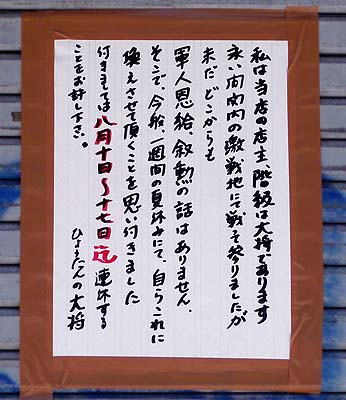 私は当店の店主、階級は大将であります
永い間関内の激戦地にて戦って参りましたが
未だどこからも
軍人恩給、叙勲の話はありません。
そこで、今般、一週間の夏休みにて、自らこれに
換えさせて頂くことを思い付きました
付きましては八月十日〜十七日迄連休する
ことをお許し下さい。
ひょうたんの大将